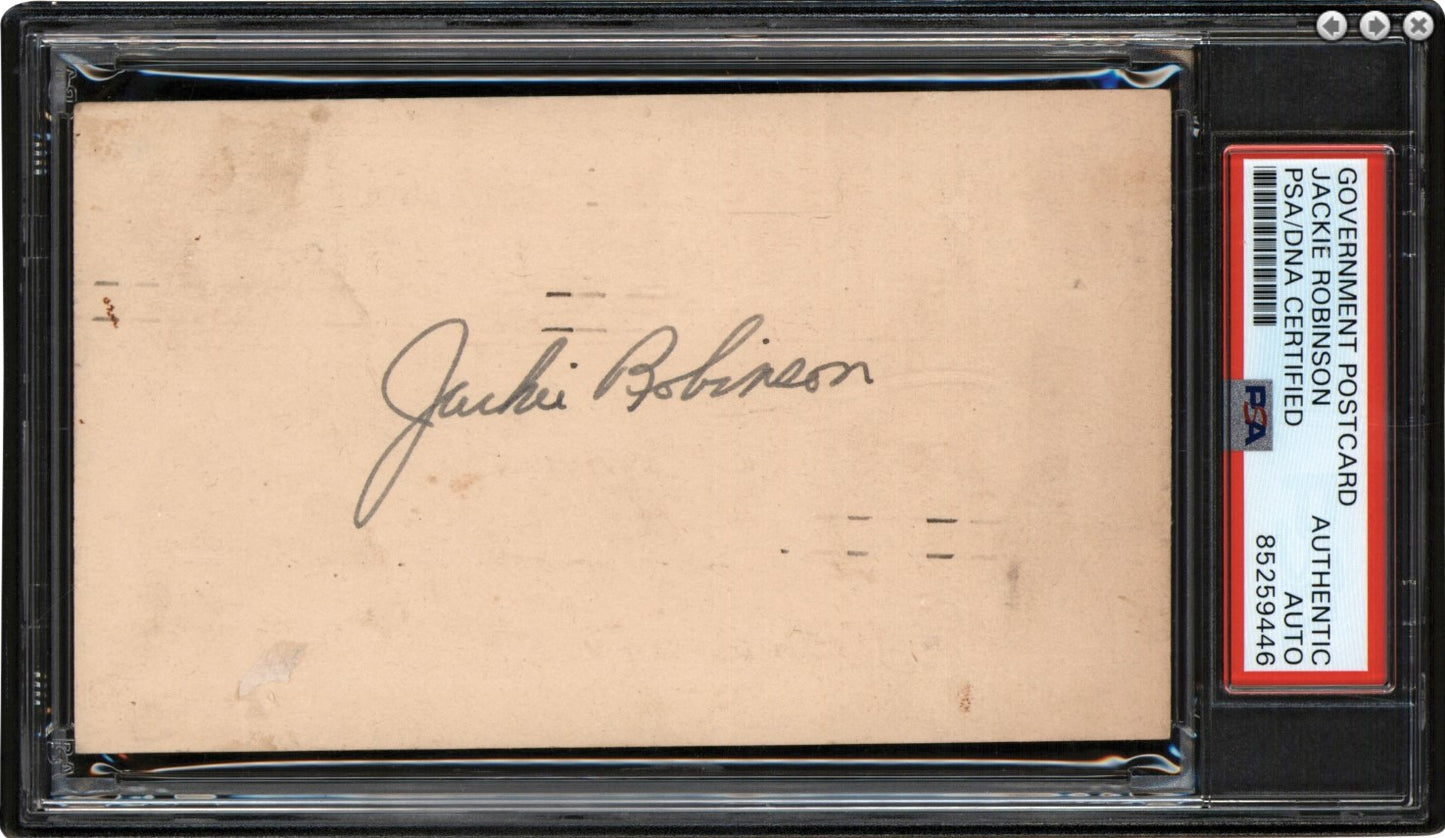 Jackie Robinson
GOVERNMENT POSTCARD
JACKIE ROBINSON AUTHENTIC
PSA/DNA CERTIFIED AUTO
85259446
PSA